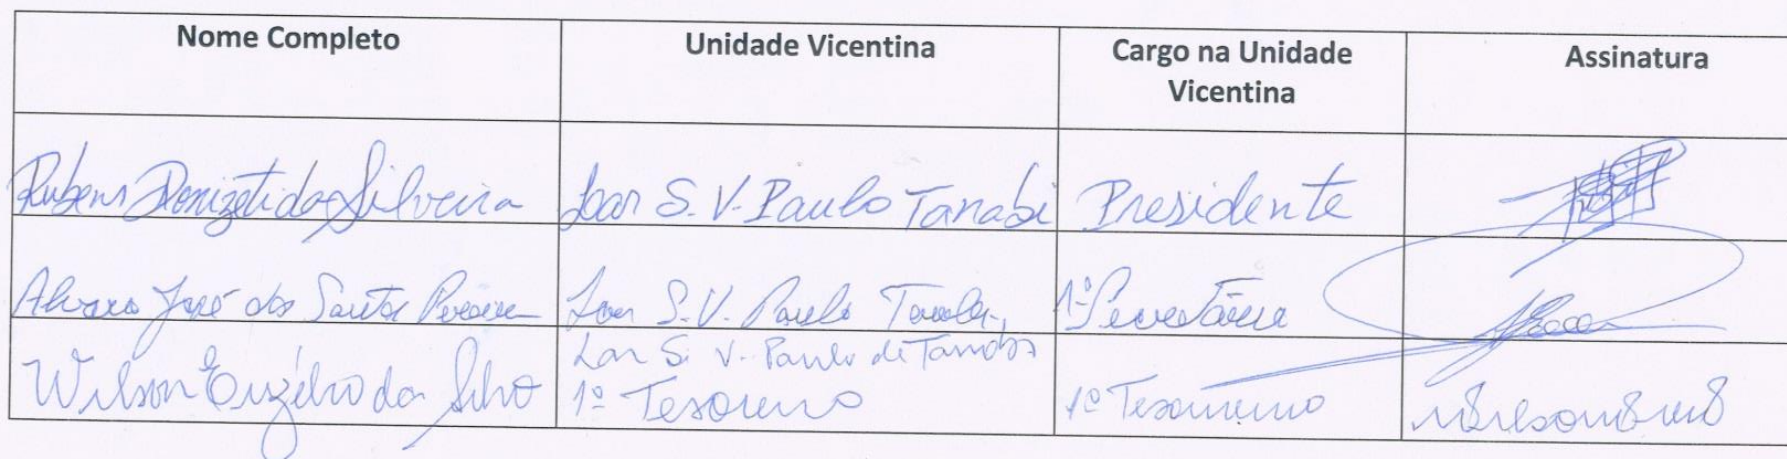 Nome Completo Unidade Vicentina Cargo na Unidade Vicentina Assinatura
Rubens Donizeti da Silveira Lar S. V. Paulo Tanabi Presidente
Alvaro José dos Santos Pereira Lar S. V. Paulo Tanabi, 1º Secretário
Lar S. V. Paulo de Tanabi
Wilson Euzébio da Silva 1º Tesoureiro 1º Tesoureiro